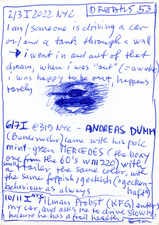 2/3 I 2022 NYC
DREAMS 53
I am / someone is driving a car
or / and a tank through a wall
→ I went in and out of that
dream, when I was "out" (= awake
I was happy to be out, happens
rarely
6/7 I E319 NYC - ANDREAS DUHM
(Bundeswehr) came with his pale
mint-green MERCEDES (the boxy
one from the 60's W111220) with
a trailer, the same color, with
the same
behaviour as always
10/11 I Thomas Probst (KFG)
my car, and asks me to drive slowly,
because he has a frail health